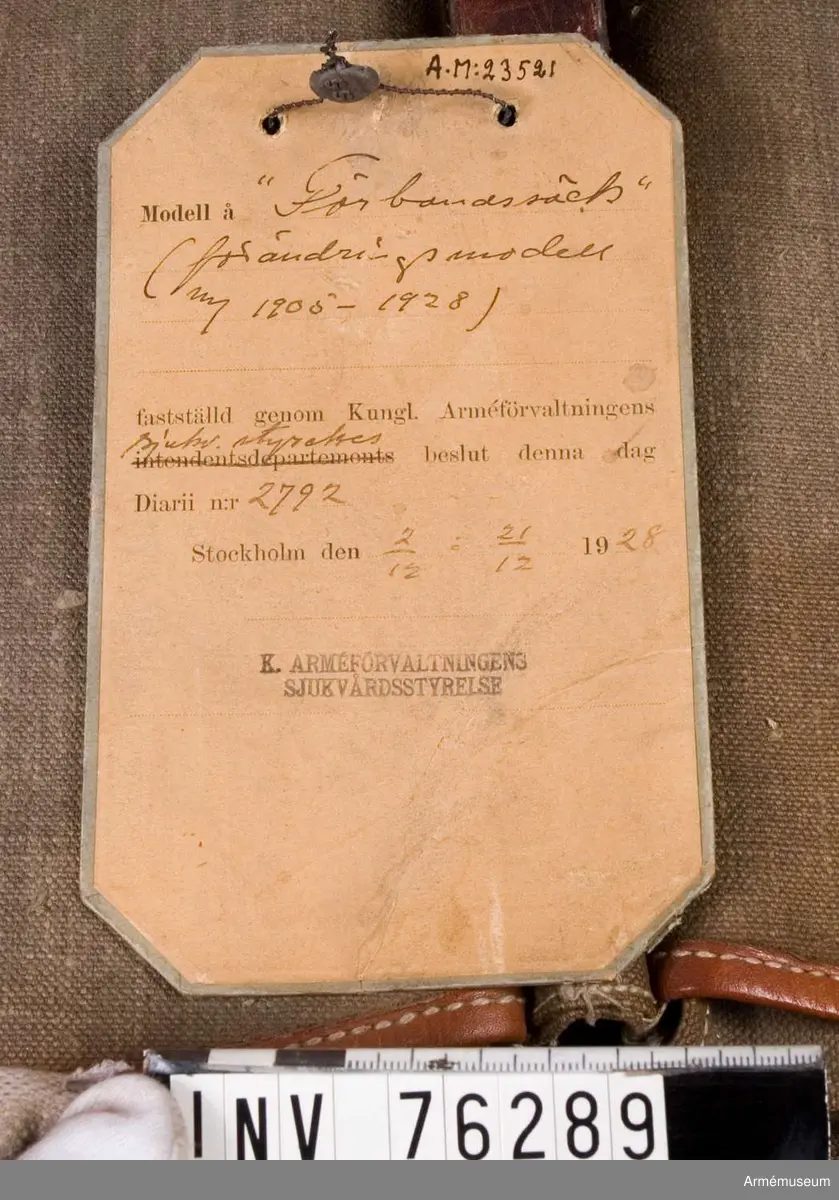 A.M:23521
Modell å "Förbandssäck"
(förändringsmodell
1905 – 1928)
fastställd genom Kungl. Arméförvaltningens
sjukv. styrelses
intendentsdepartements beslut denna dag
Diarii n:r 2792
Stockholm den 2/12 : 21/12 1928
K. ARMÉFÖRVALTNINGENS
SJUKVÅRDSSTYRELSE
INV 76289
Foto: Armémuseum